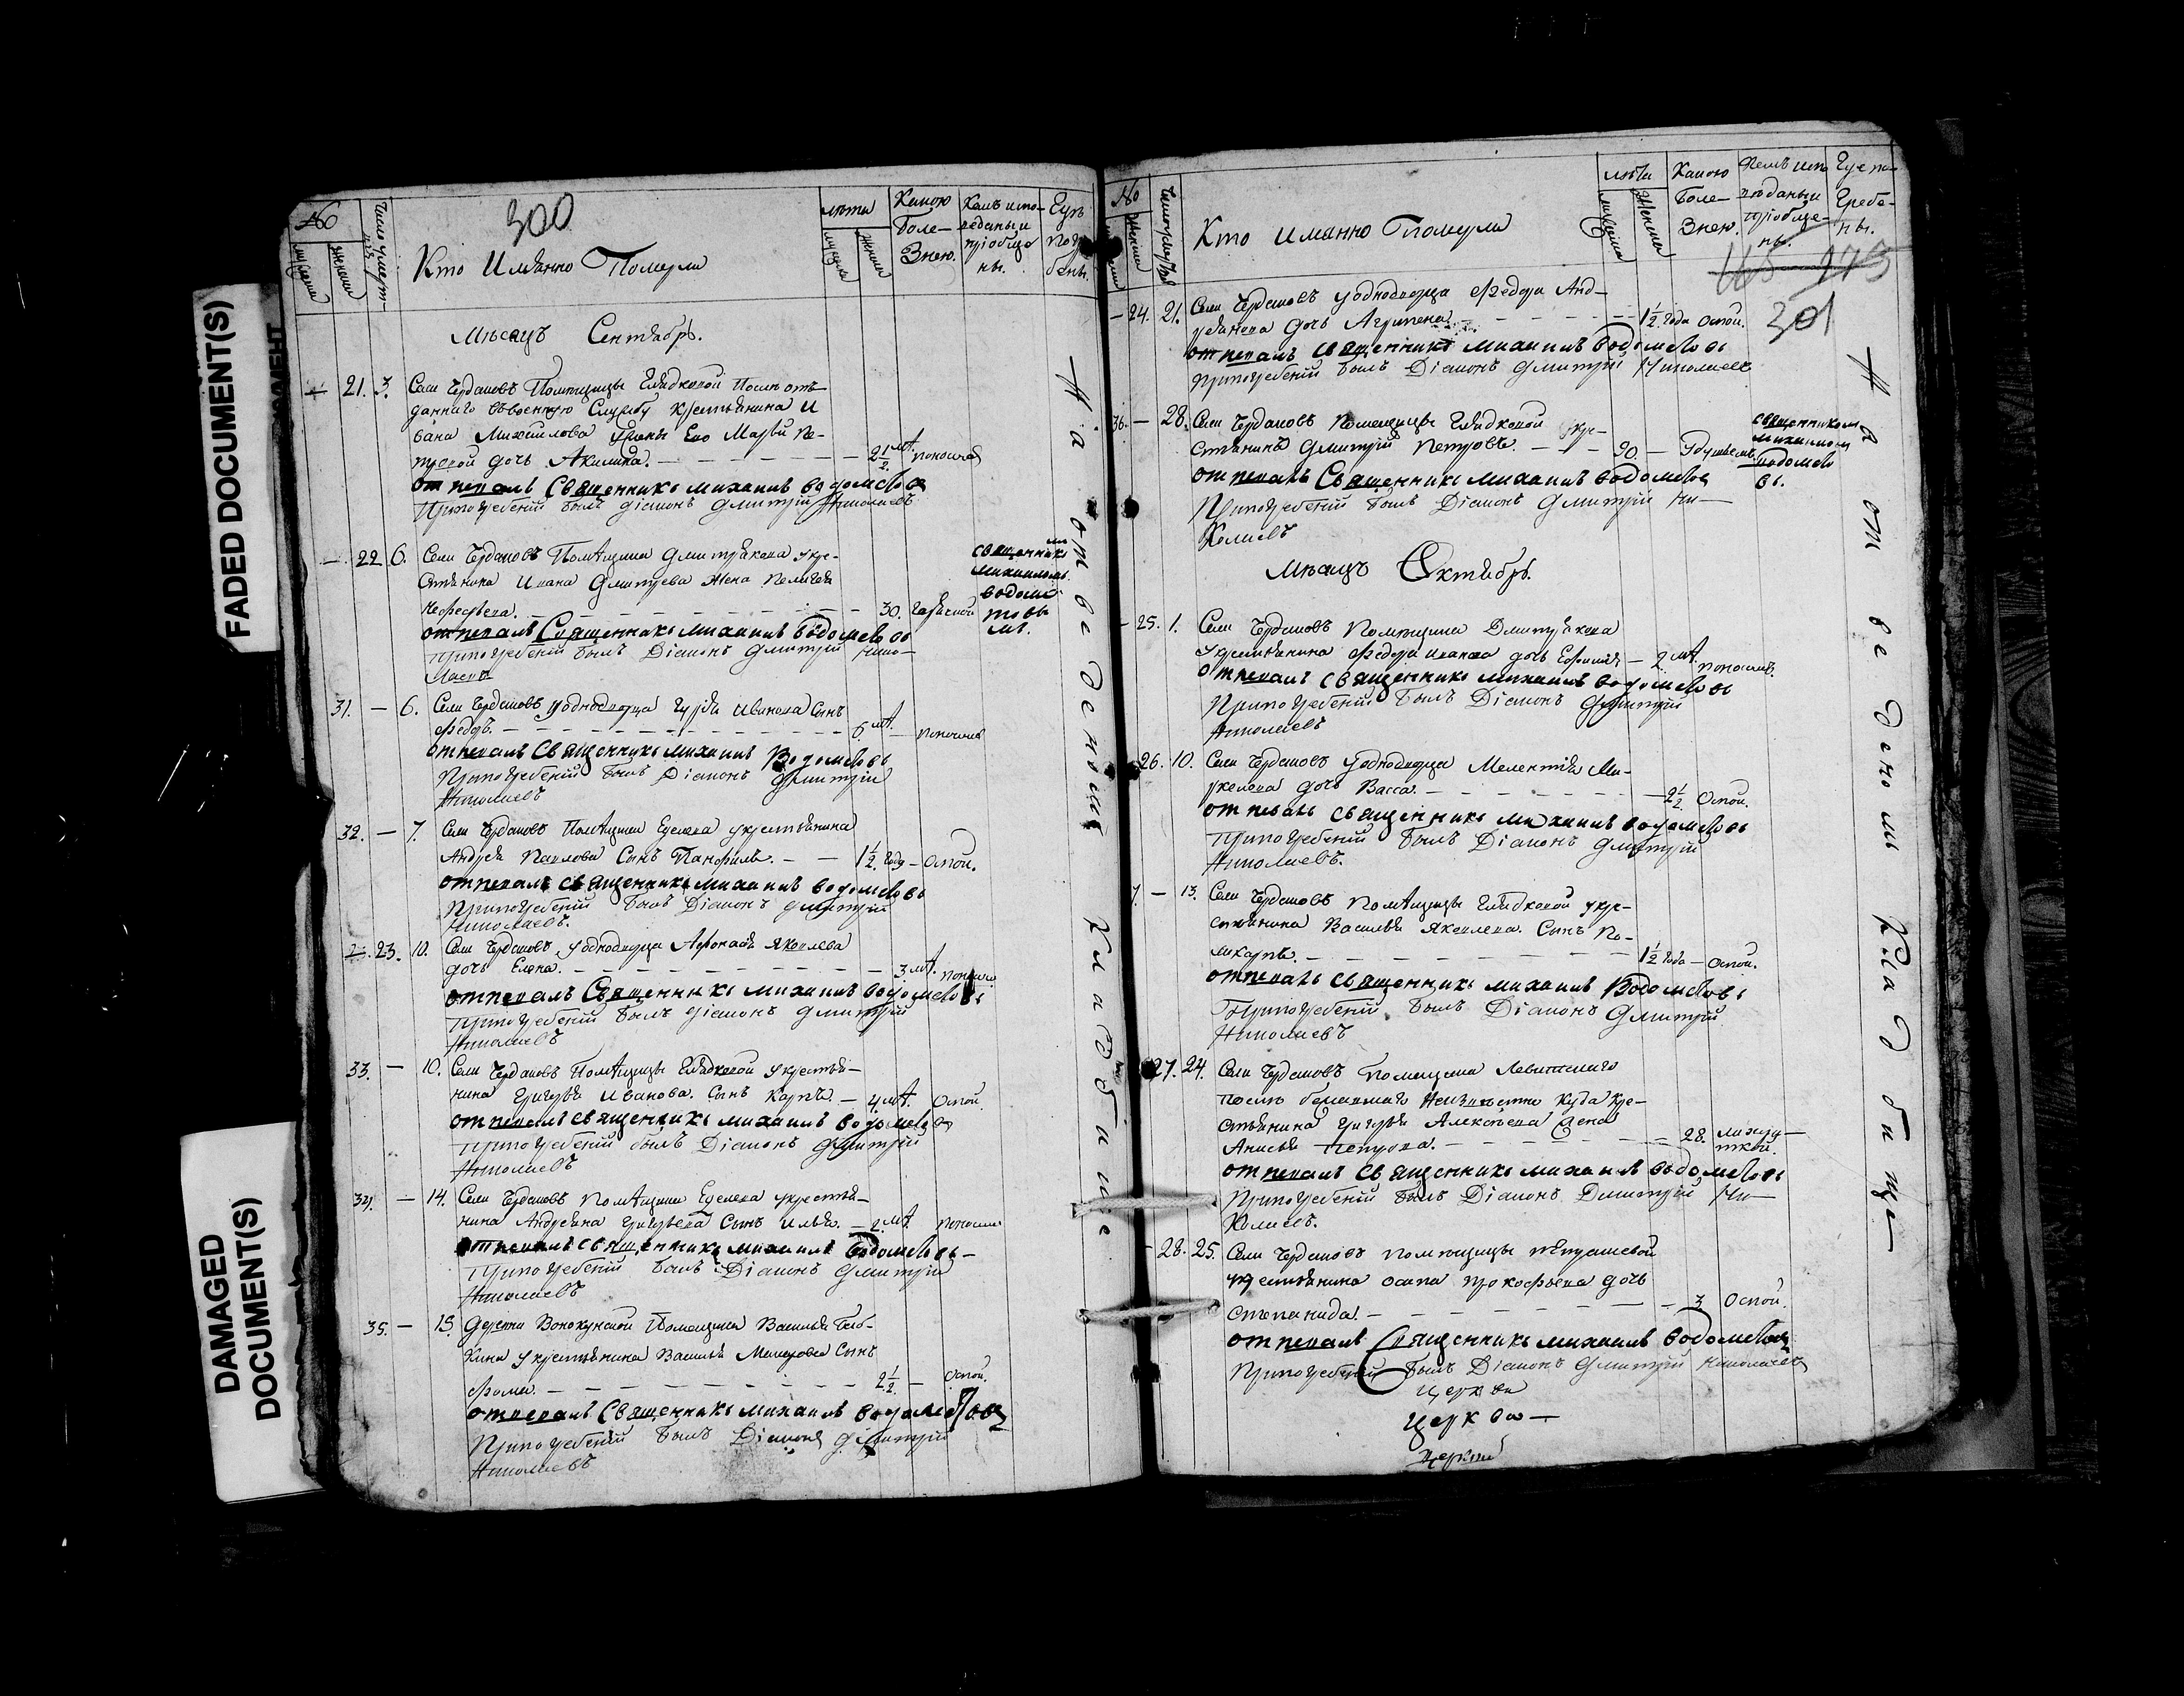 FADED DOCUMENT(S)
DAMAGED
DOCUMENT(S)
300
№
Кто Имянно Померли
лѣта
Какою
Боле-
Знею.
Кѣмъ испо-
веданы и
приобще
ны.
Гдѣ
погре
бены.
Мѣсецъ Сентябрь.
21. 3. Села Чердановъ Помѣщицы Глѣдковой После отъ-
даннаго въ военную Службу крестьянина И
вана Михаилова жены Его Марьи Пе-
тровой дочь Акилина. 2 1/2 лѣт. поносомъ
отпевалъ Священникъ михаилъ водомеровъ
При погребении былъ діаконъ Дмитрий Николаевъ
22. 6. Села Чердановъ Помѣщика Дмитрѣкова кре-
стьянина Ивана Дмитрева жена Пелагея
30. Горячкой
священнико
михаиломъ
отпевалъ Священникъ михаилъ водомеровъ
При погребении былъ Діаконъ Дмитрий Нико-
лаевъ
31. — 6. Села Чердановъ однодворца Гурья Иванова Сынъ
Федоръ. 6. лѣт. поносомъ
отпевалъ Священникъ михаилъ Водомеровъ
При погребении былъ Діаконъ Дмитрий
Николаевъ
32. — 7. Села Чердановъ Помѣщика крестьянина
Андрея Павлова Сынъ Панфилъ. — 1 1/2 году — Оспой.
отпевалъ священникъ михаилъ водомеровъ
При погребении былъ Діаконъ Дмитрий
Николаевъ.
23. 10. Села Чердановъ однодворца Афонасья Яковлева
дочь Елена. 3 лѣт. поносом
отпевалъ Священникъ михаилъ водомеровъ
При погребении былъ діаконъ Дмитрий
Николаевъ
33. — 10. Села Чердановъ Помѣщицы Глѣдковой крестья-
нина Григорья Иванова. Сынъ Карпъ. — 4 лѣт. Оспой.
отпевалъ священникъ михаилъ водомеров
При погребении былъ Діаконъ Дмитрий
Николаевъ
34. — 14. Села Чердановъ Помѣщика крестья-
нина Андреяна Григорьева Сынъ Илья. — 2 лѣт. поносомъ
отпевалъ священникъ михаилъ Водомеровъ —
При погребении былъ Діаконъ Дмитрий
Николаевъ
35. — 15. Деревни Помещика Василья
крестьянина Василья Сынъ
Фома. 2 1/2. — Оспой.
отпевалъ Священникъ михаилъ водомеровъ
При погребении былъ Діаконъ Дмитрий
Николаевъ
На отведеномъ Кладбище
№
Кто Иманно Померли
лѣта
Какою
Боле-
Знею.
Кемъ испо
вѣданы и
приобще-
ны.
Где по-
гребе-
ны.
301
24. 21. Села Чердановъ однодворца Федора Анд-
рѣянова дочь Агрипена. 1 1/2 года Оспой.
отпевалъ священникъ михаилъ водомеровъ
При погребении былъ Діаконъ Дмитрий Николаевъ
36. — 28. Села Чердановъ Помещицы Глѣдковой кре-
стьянинъ Дмитрий Петровъ. 90. — Удушьемъ
священникомъ
михаиломъ
отпевалъ Священникъ михаилъ водомеровъ
При погребении былъ Діаконъ Дмитрий Ни-
колаевъ
Мѣсяцъ Октябрь.
25. 1. Села Чердановъ Помѣщика Дмитрѣкова
крестьянина Федора Иванова дочь — 2 лѣт. поносомъ.
отпевалъ священникъ михаилъ водомеровъ
При погребении былъ Діаконъ Дмитрий
Николаевъ
26. 10. Села Чердановъ однодворца Мелентия
дочь Васса. 2 1/2. Оспой.
отпевалъ священникъ михаилъ водомеровъ
При погребении былъ Діаконъ Дмитрий
Николаевъ.
7 — 13. Села Чердановъ Помѣщицы Глѣдковой кре-
стьянина Василья Яковлева. Сынъ По-
ликарпъ. 1 1/2 года — Оспой.
отпевалъ священникъ михаилъ Водомеровъ
При погребении былъ Діаконъ Дмитрий
Николаевъ
27. 24. Села Чердановъ Помещика Левитскаго
после бежавшаго Неизвѣстно куда кре-
стьянина Григорья Алексѣева жена
Анисья Петрова. 28.
отпевалъ Священникъ михаилъ водомеровъ
При погребении былъ Діаконъ Дмитрий Ни-
колаевъ.
28. 25. Села Чердановъ помѣщицы
крестьянина Осипа Прокофьева дочь
Степанида. 3 Оспой.
отпевалъ Священникъ михаилъ водомеровъ
При погребении былъ Діаконъ Дмитрий Николаевъ
церкви
церкви —
Церкви
На отведеномъ Кладбище